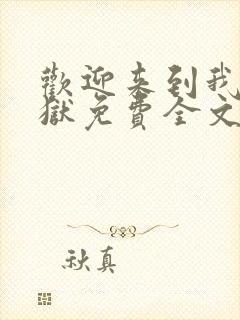 歡迎来到我
獄免費全文
秋真